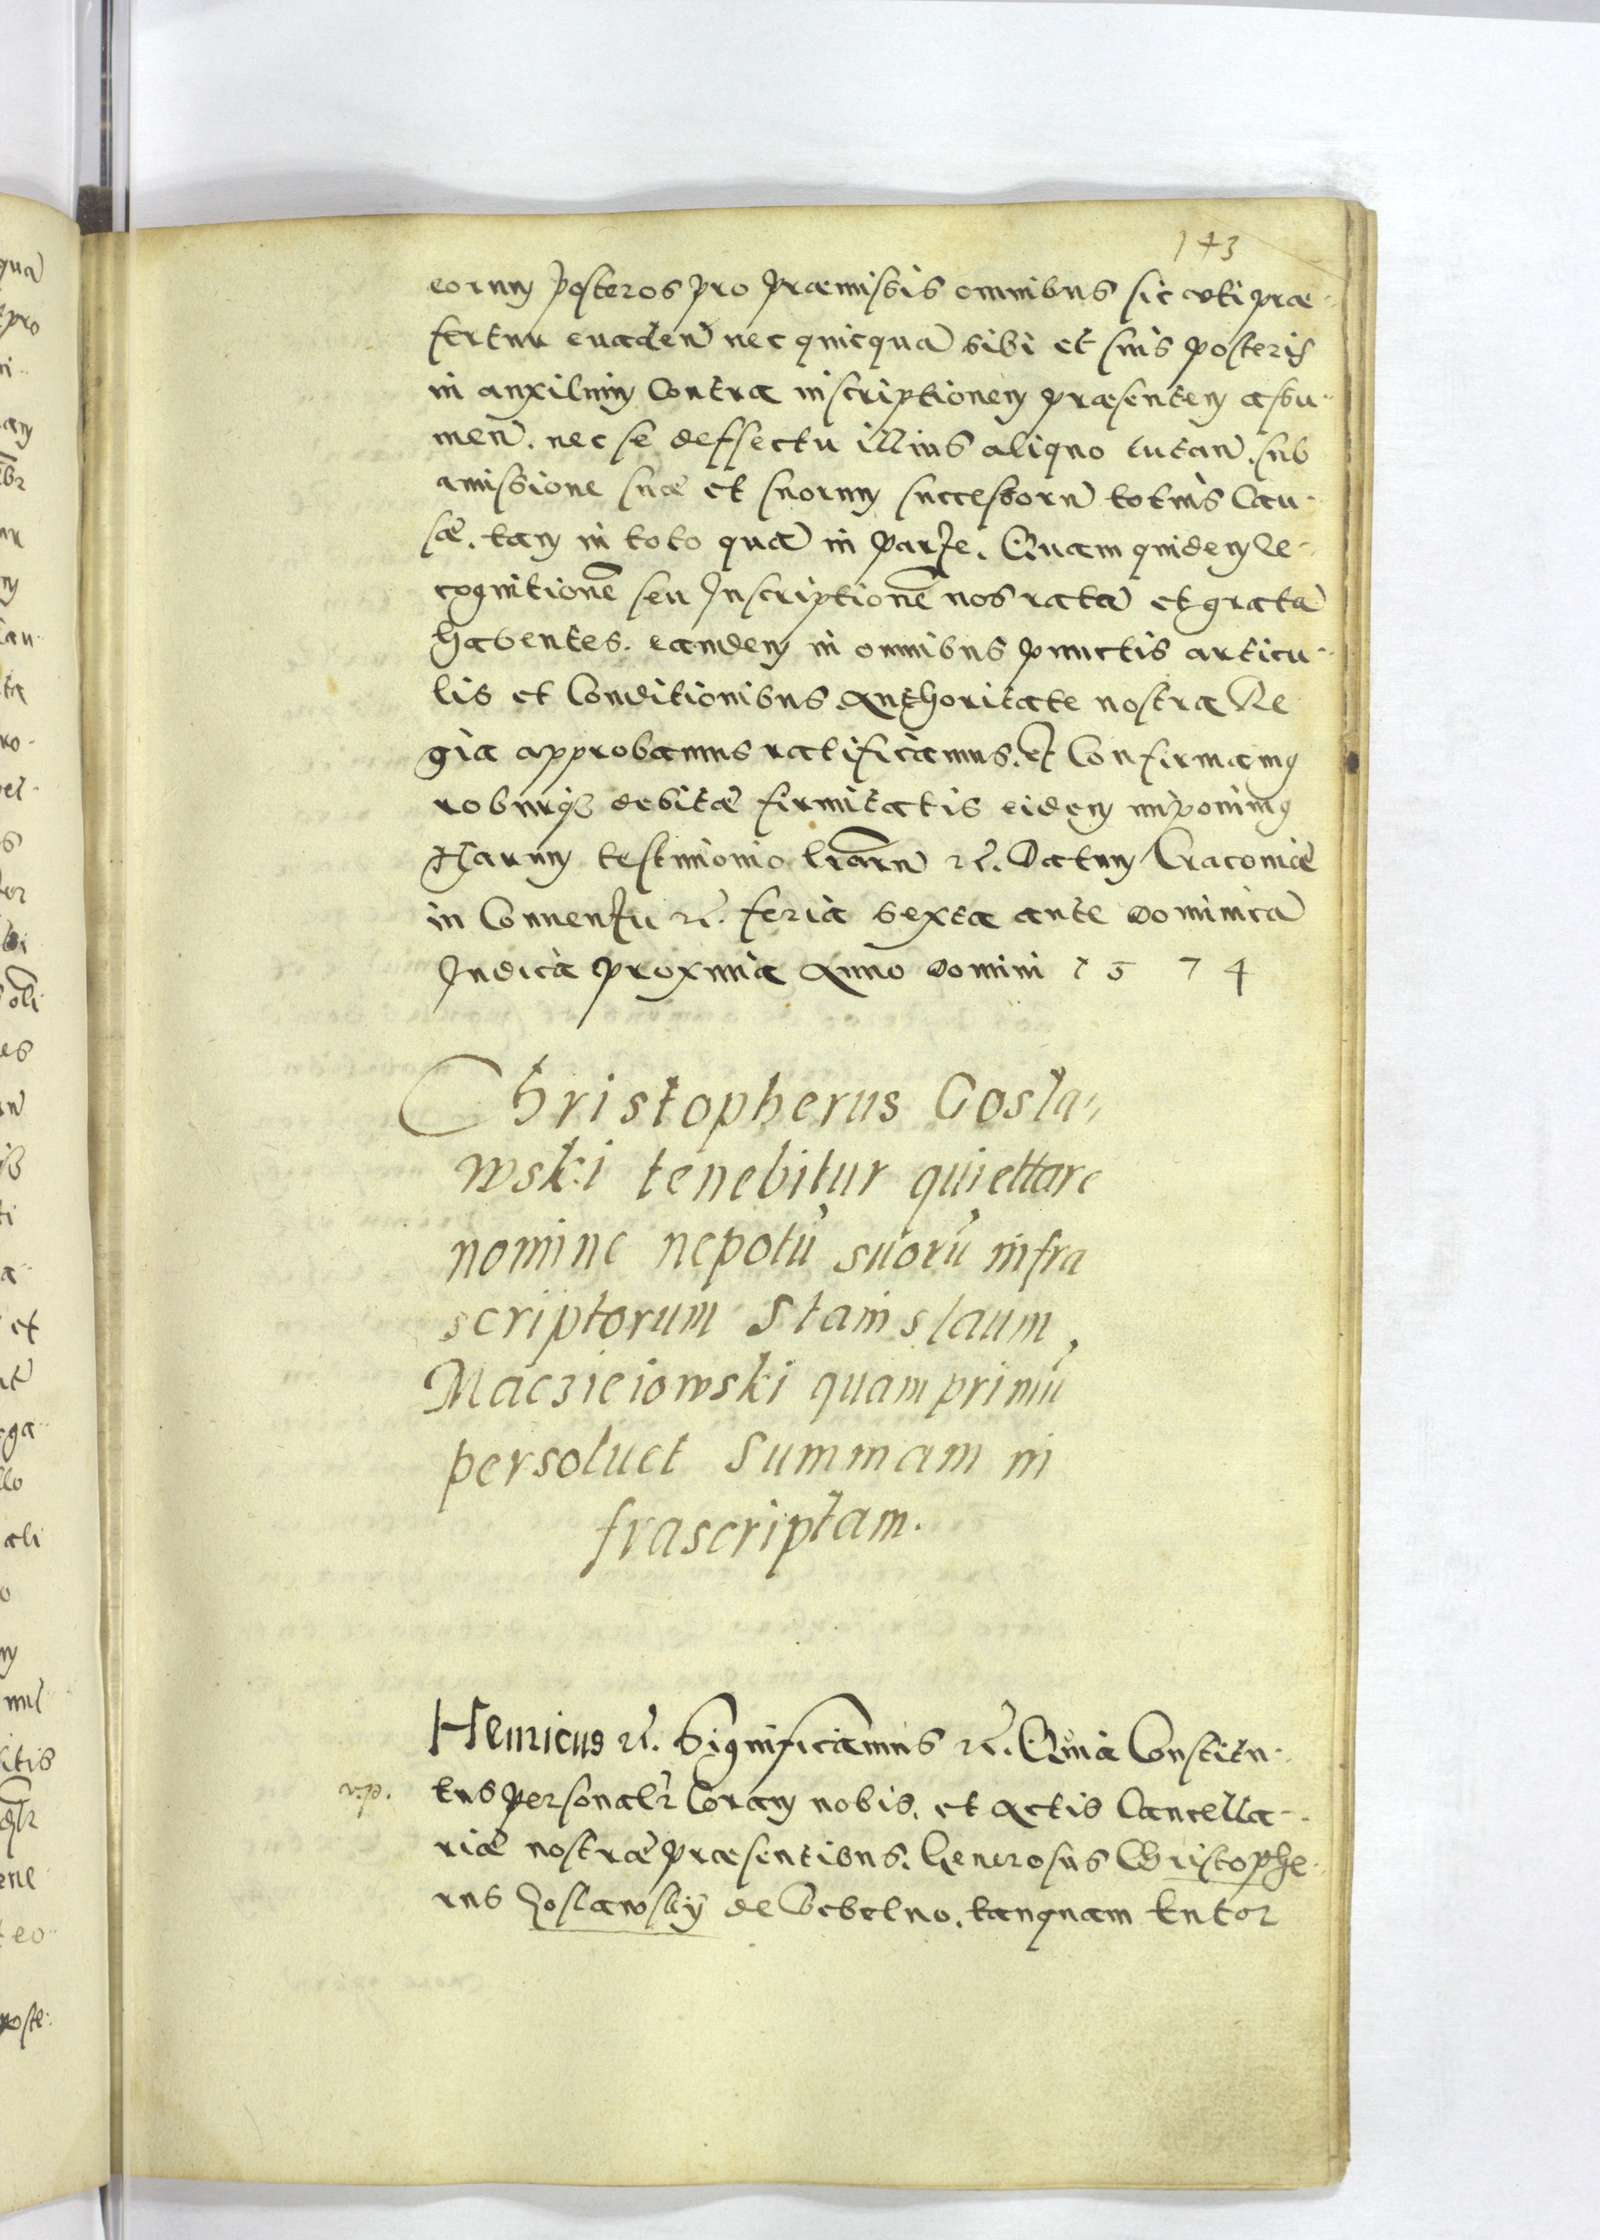 173
eorum posteros pro præmissis omnibus sic uti præ-
fertur evaden̄ nec quicquā sibi et suis posteris
in auxilium Contra inscriptionem præsentem assu-
men̄. nec se deffectu illius aliquo tutan̄. sub
amissione suæ et suorum successorū totius Cau-
sæ. tam in toto quā in parte. Quam quidem Re-
cognitionē seu Inscriptionē nos ratā et gratā
habentes. eandem in omnibus punctis articu-
lis et Conditionibus Authoritate nostra Re
gia approbamus ratificamus. et Confirmamus
roburq₃ debitæ firmitatis eidem imponimus
Harum testimonio l̄rarū etc̄. Datum Cracoviæ
in Conventu etc̄. feria sexta ante Dominicā
Iudica proxima Anno Domini 1574
Christopherus Gosla-
wski tenebitur quiettare
nomine nepotū suorū infra
scriptorum Stanislaum
Maczieiowski quamprimū
persoluet summam in
frascriptam.
Henricus etc̄. Significamus etc̄. Quia Constitu-
r.p.
tus personalr̄ Coram nobis. et Actis Cancella-
riæ nostræ præsentibus. Generosus Christophe-
rus Goslawskÿ de Bebelno. tanquam tutor